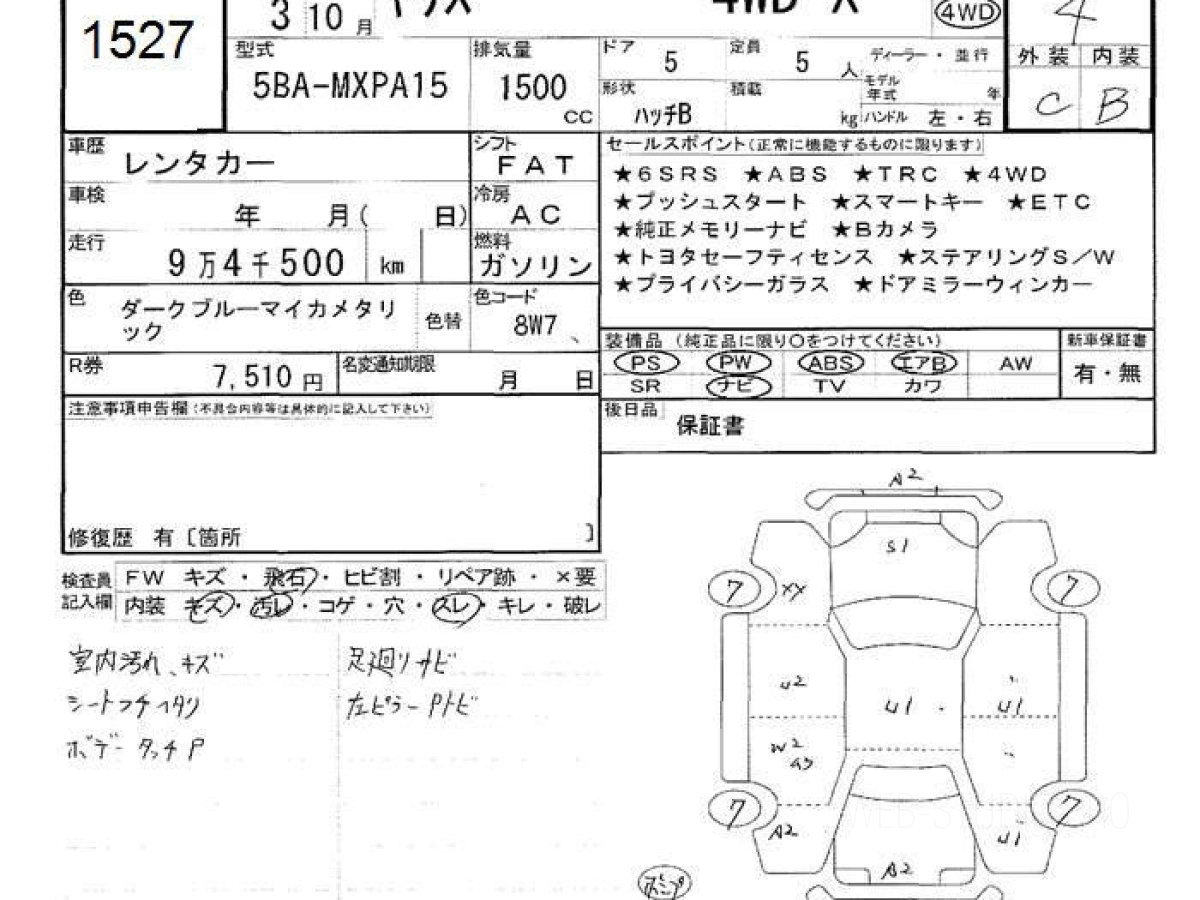 1527
3 10 月 ヤリス 4WD X 4WD
4
型式 排気量 ドア 5 定員 5 人 ディーラー・並行 外装 内装
5BA-MXPA15 1500 CC 形状 ハッチB 積載 kg モデル年式 年
ハンドル 左・右 C B
車歴 レンタカー シフト FAT
車検 年 月( 日) 冷房 AC
走行 9万4千500 km 燃料 ガソリン
色 ダークブルーマイカメタリ
ック 色替 色コード 8W7
R券 7,510円 名変通知期限 月 日
セールスポイント(正常に機能するものに限ります)
★6SRS ★ABS ★TRC ★4WD
★プッシュスタート ★スマートキー ★ETC
★純正メモリーナビ ★Bカメラ
★トヨタセーフティセンス ★ステアリングS/W
★プライバシーガラス ★ドアミラーウィンカー
装備品 (純正品に限り○をつけてください) 新車保証書
PS PW ABS エアB AW 有・無
SR ナビ TV カワ
後日品 保証書
注意事項申告欄(不具合内容等は具体的に記入して下さい)
修復歴 有〔箇所 〕
検査員 FW キズ・飛石・ヒビ割・リペア跡・×要
記入欄 内装 キズ・汚レ・コゲ・穴・スレ・キレ・破レ
室内汚れ、キズ 足廻りサビ
シートフチヘタリ 左ピラーPトビ
ボデータッチP
A2
S1
7 XX 7
U2 U1 U1
W2
A3
7 7
A2 U1
A2